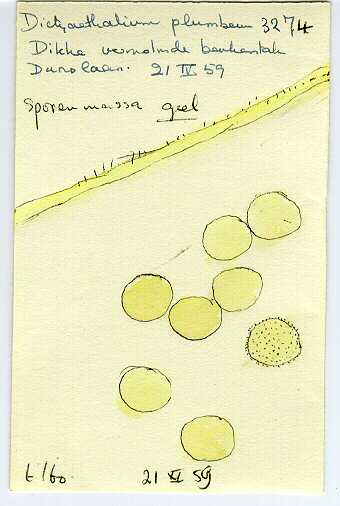 Dictyaethalium plumbeum 3274
Dikke vermolmde beukentak
Duno laan. 21 IV 59
Sporenmassa geel
t/60. 21 XI 59